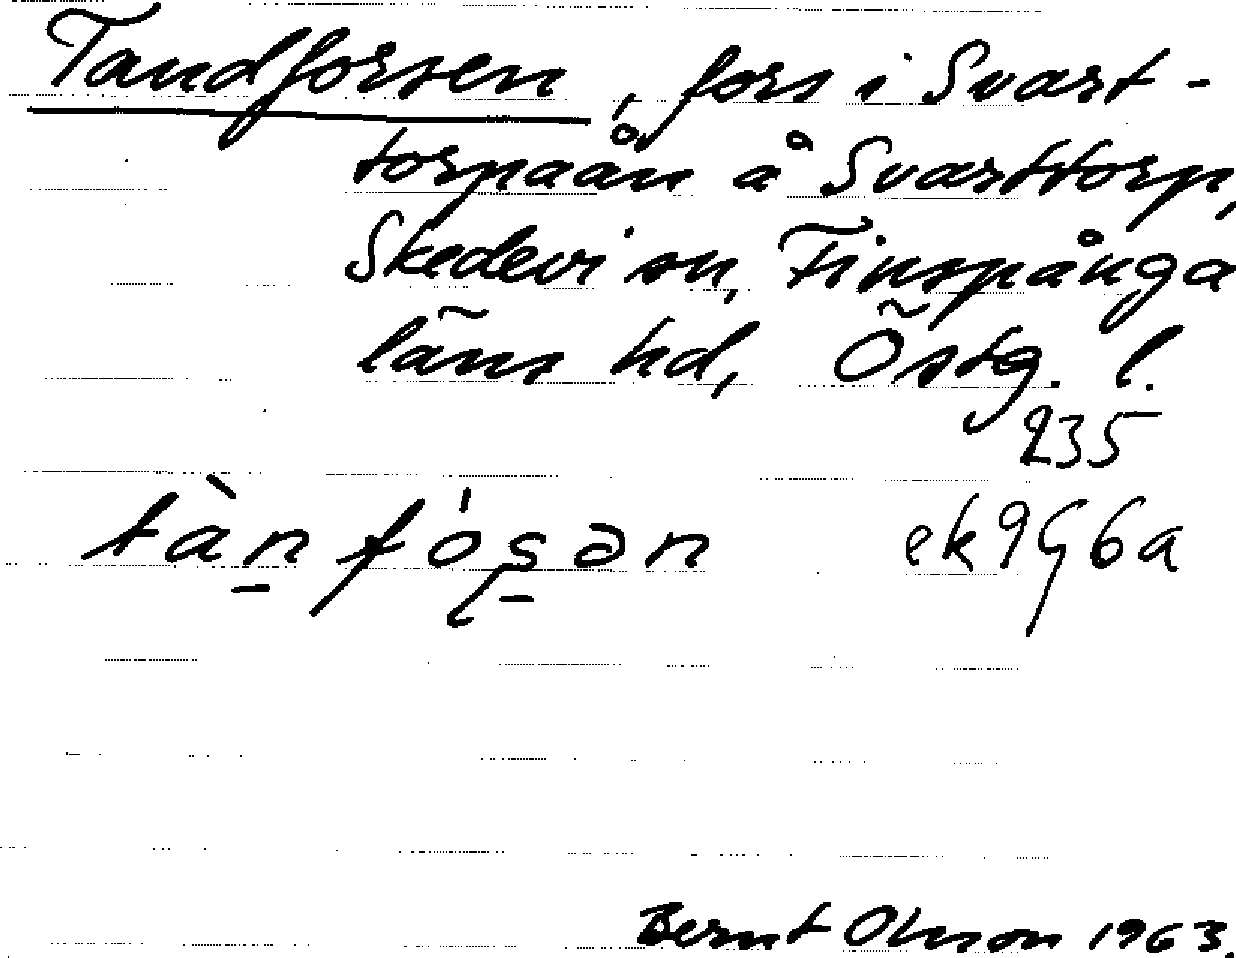 Tandforsen, fors i Svart-
torpaån å Svarttorp,
Skedevi sn, Finspånga
läns hd, Östg. l.
235
tàn fósən ek 9G6a
Bernt Olsson 1963.